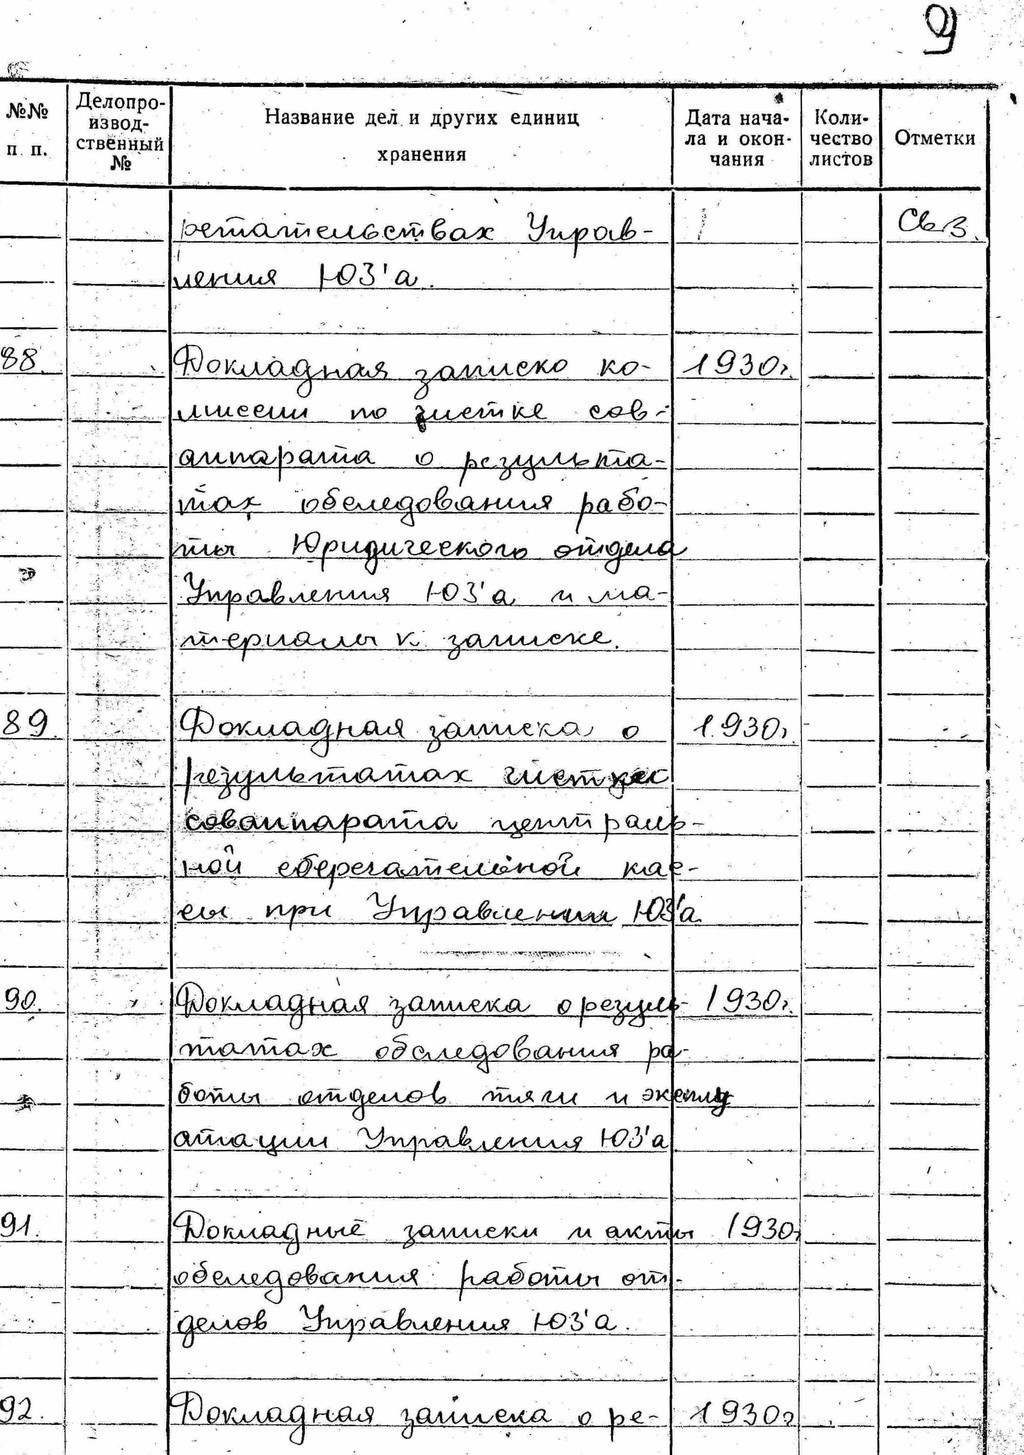 9
№№ п. п.
Делопро-
извод-
ственный
№
Название дел и других единиц
хранения
Дата нача-
ла и окон-
чания
Коли-
чество
листов
Отметки
ретательствах Управ-
ления ЮЗ'а.
Св 3.
88. Докладная записка ко- 1930г.
миссии по чистке сов-
аппарата о результа-
тах обследования рабо-
ты Юридического отдела
Управления ЮЗ'а и ма-
териалы к записке.
89. Докладная записка о 1930г.
результатах чистки
соваппарата централь-
ной сберегательной кас-
сы при Управлении ЮЗ'а
90. Докладная записка о резуль- 1930г.
татах обследования ра-
боты отделов тяги и эксплу
атации Управления ЮЗ'а
91. Докладные записки и акты 1930г
обследования работы от-
делов Управления ЮЗ'а.
92. Докладная записка о ре- 1930г